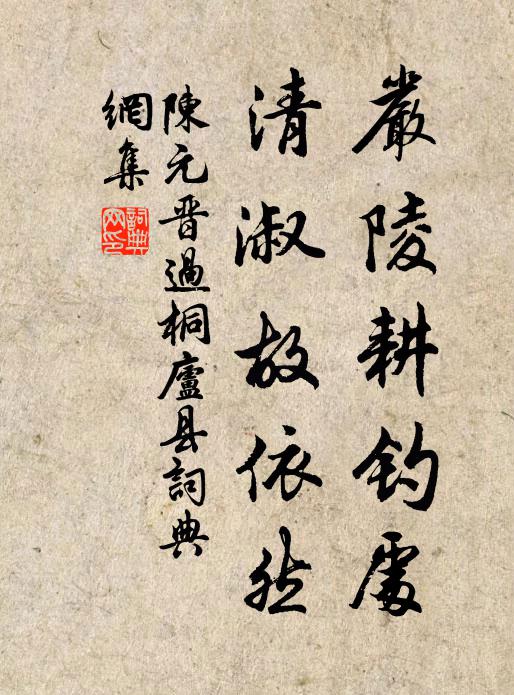 嚴陵耕釣處
清淑故依然
陳元晉過桐廬县詞典
網集
詞典
网印